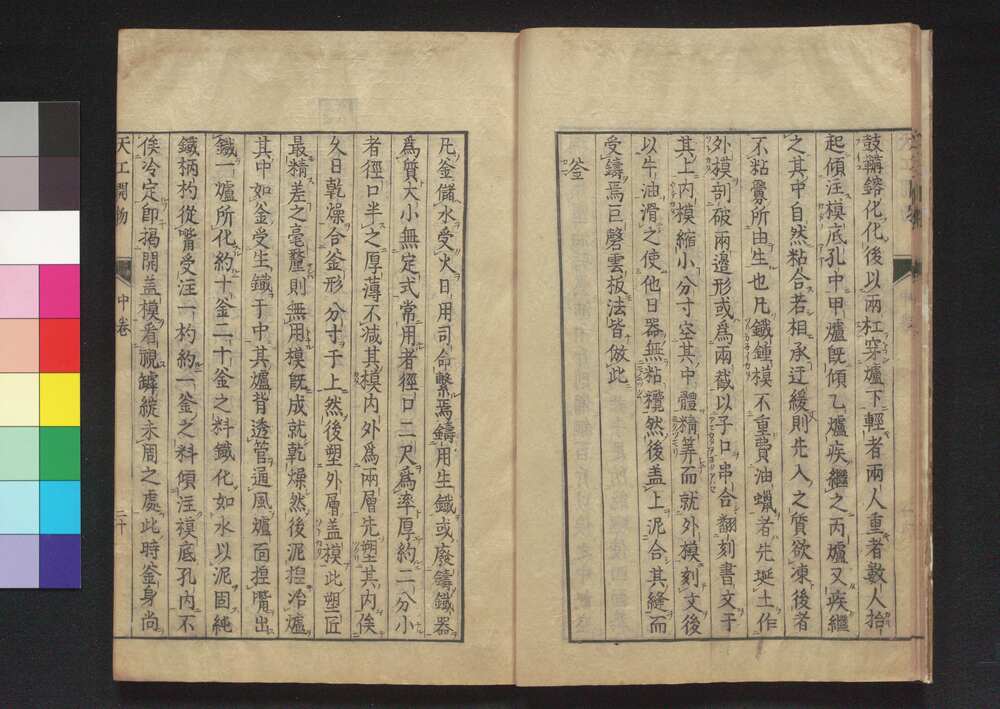 鼓鞴鎔化化後以兩杠穿爐下輕者兩人重者數人抬
起傾注模底孔中甲爐既傾乙爐疾繼之丙爐又疾繼
之其中自然粘合若相承迂緩則先入之質欲凍後者
不粘釁所由生也凡鐵鍾模不重費油蠟者先埏土作
外模剖破兩邊形或爲兩截以子口串合翻刻書文于
其上內模縮小分寸空其中體精筭而就外模刻文後
以牛油滑之使他日器無粘欖然後盖上泥合其縫而
受鑄焉巨磬雲板法皆倣此
釜
凡釜儲水受火日用司命繫焉鑄用生鐵或廢鑄鐵器
爲質大小無定式常用者徑口二尺爲率厚約二分小
者徑口半之厚薄不减其模內外爲兩層先塑其內俟
久日乾燥合釜形分寸于上然後塑外層盖模此塑匠
最精差之毫釐則無用模既成就乾燥然後泥揑冶爐
其中如釜受生鐵于中其爐背透管通風爐面揑嘴出
鐵一爐所化約十釜二十釜之料鐵化如水以泥固純
鐵柄杓從嘴受注一杓約一釜之料傾注模底孔內不
俟冷定即揭開盖模看視罅綻未周之處此時釜身尚
天工開物 中卷 二十